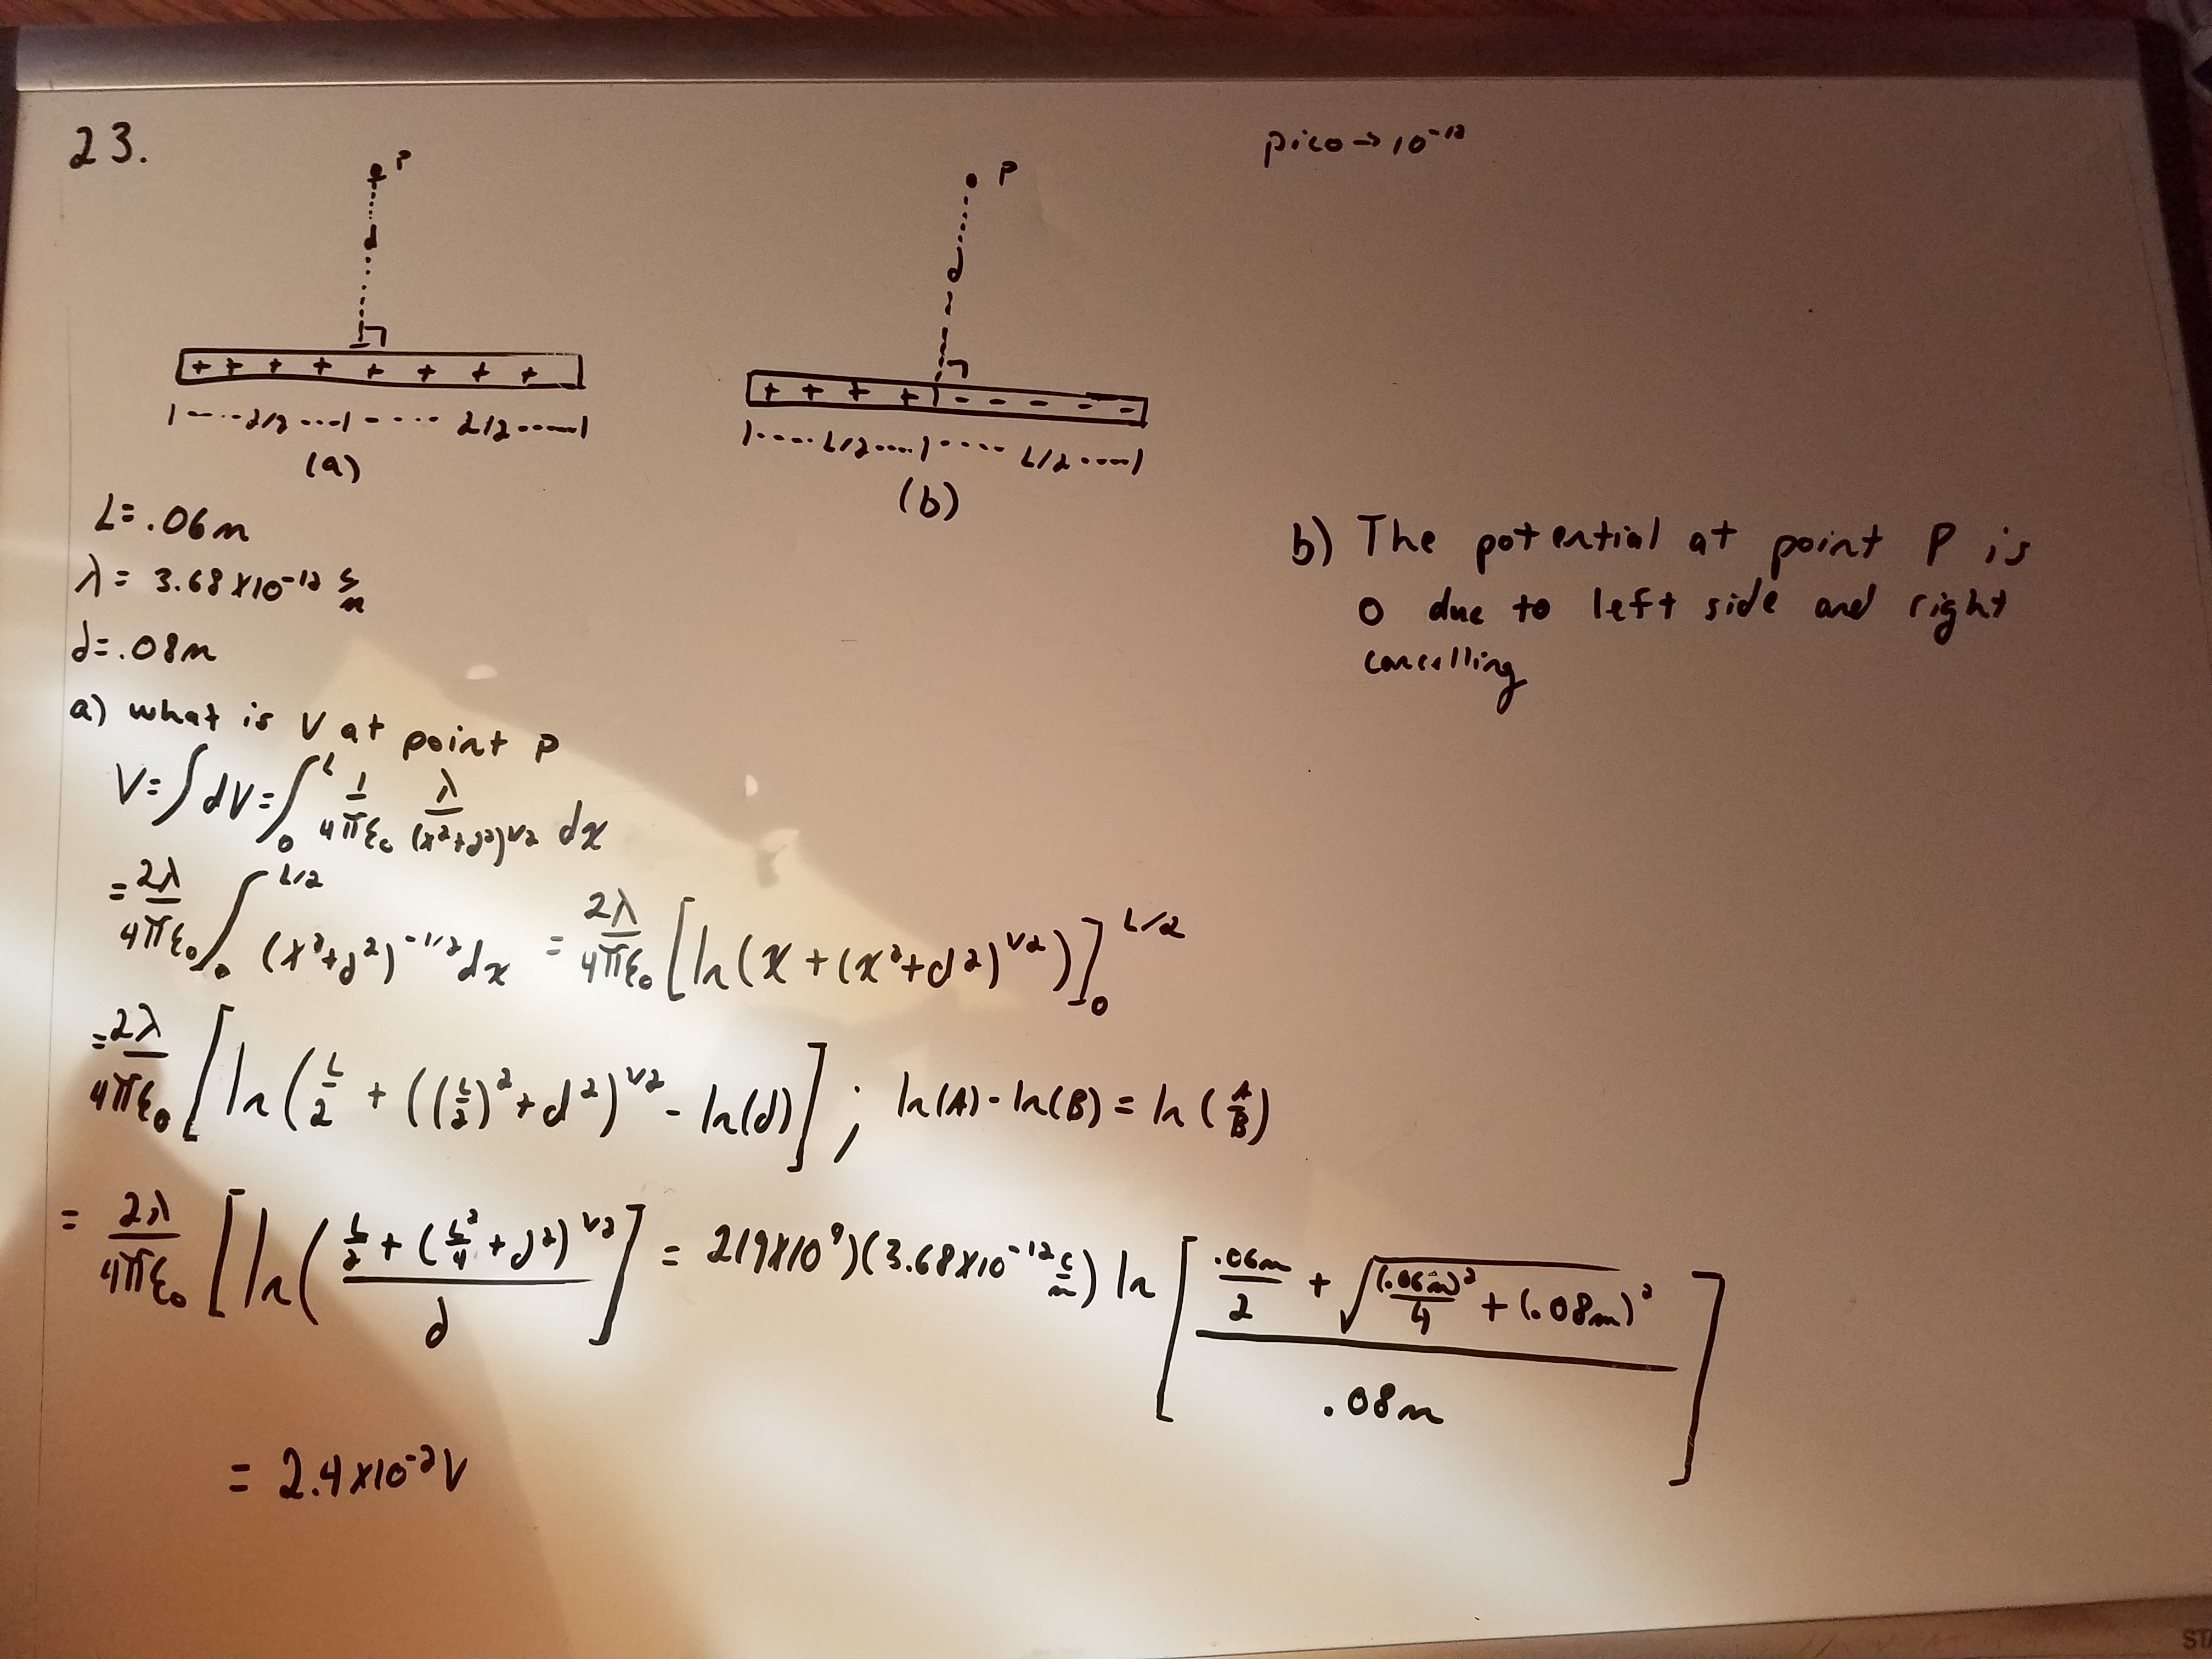 23.
pico → 10⁻¹²
P
d
+ + + + + + + +
|----L/2----|----L/2----|
(a)
P
d
+ + + + - - - - -
|----L/2----|----L/2----|
(b)
L = .06m
λ = 3.68 x 10⁻¹² C/m
d = .08m
a) what is V at point P
V = ∫dV = ∫₀ᴸ 1/4πε₀ λ/(x²+d²)^1/2 dx
= 2λ/4πε₀ ∫₀^L/2 (x²+d²)^-1/2 dx = 2λ/4πε₀ [ln(x + (x²+d²)^1/2)]₀^L/2
= 2λ/4πε₀ [ln(L/2 + ((L/2)²+d²)^1/2 - ln(d)] ; ln(A) - ln(B) = ln(A/B)
= 2λ/4πε₀ [ln((L/2 + (L²/4 + d²)^1/2)/d] = 2(9x10⁹)(3.68x10⁻¹² C/m) ln [(.06m/2 + √((.06m)²/4 + (.08m)²)/.08m]
= 2.4 x 10⁻² V
b) The potential at point P is
0 due to left side and right
cancelling